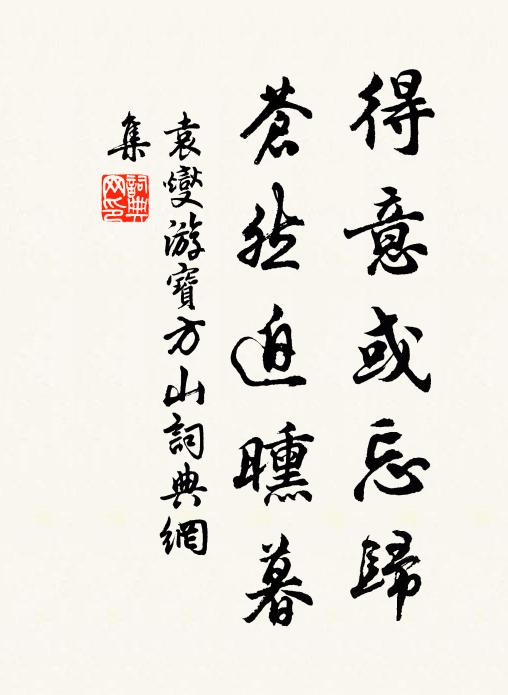 得意或忘歸
蒼然迫曛暮
袁燮游寶方山詞典網
集
詞典網印